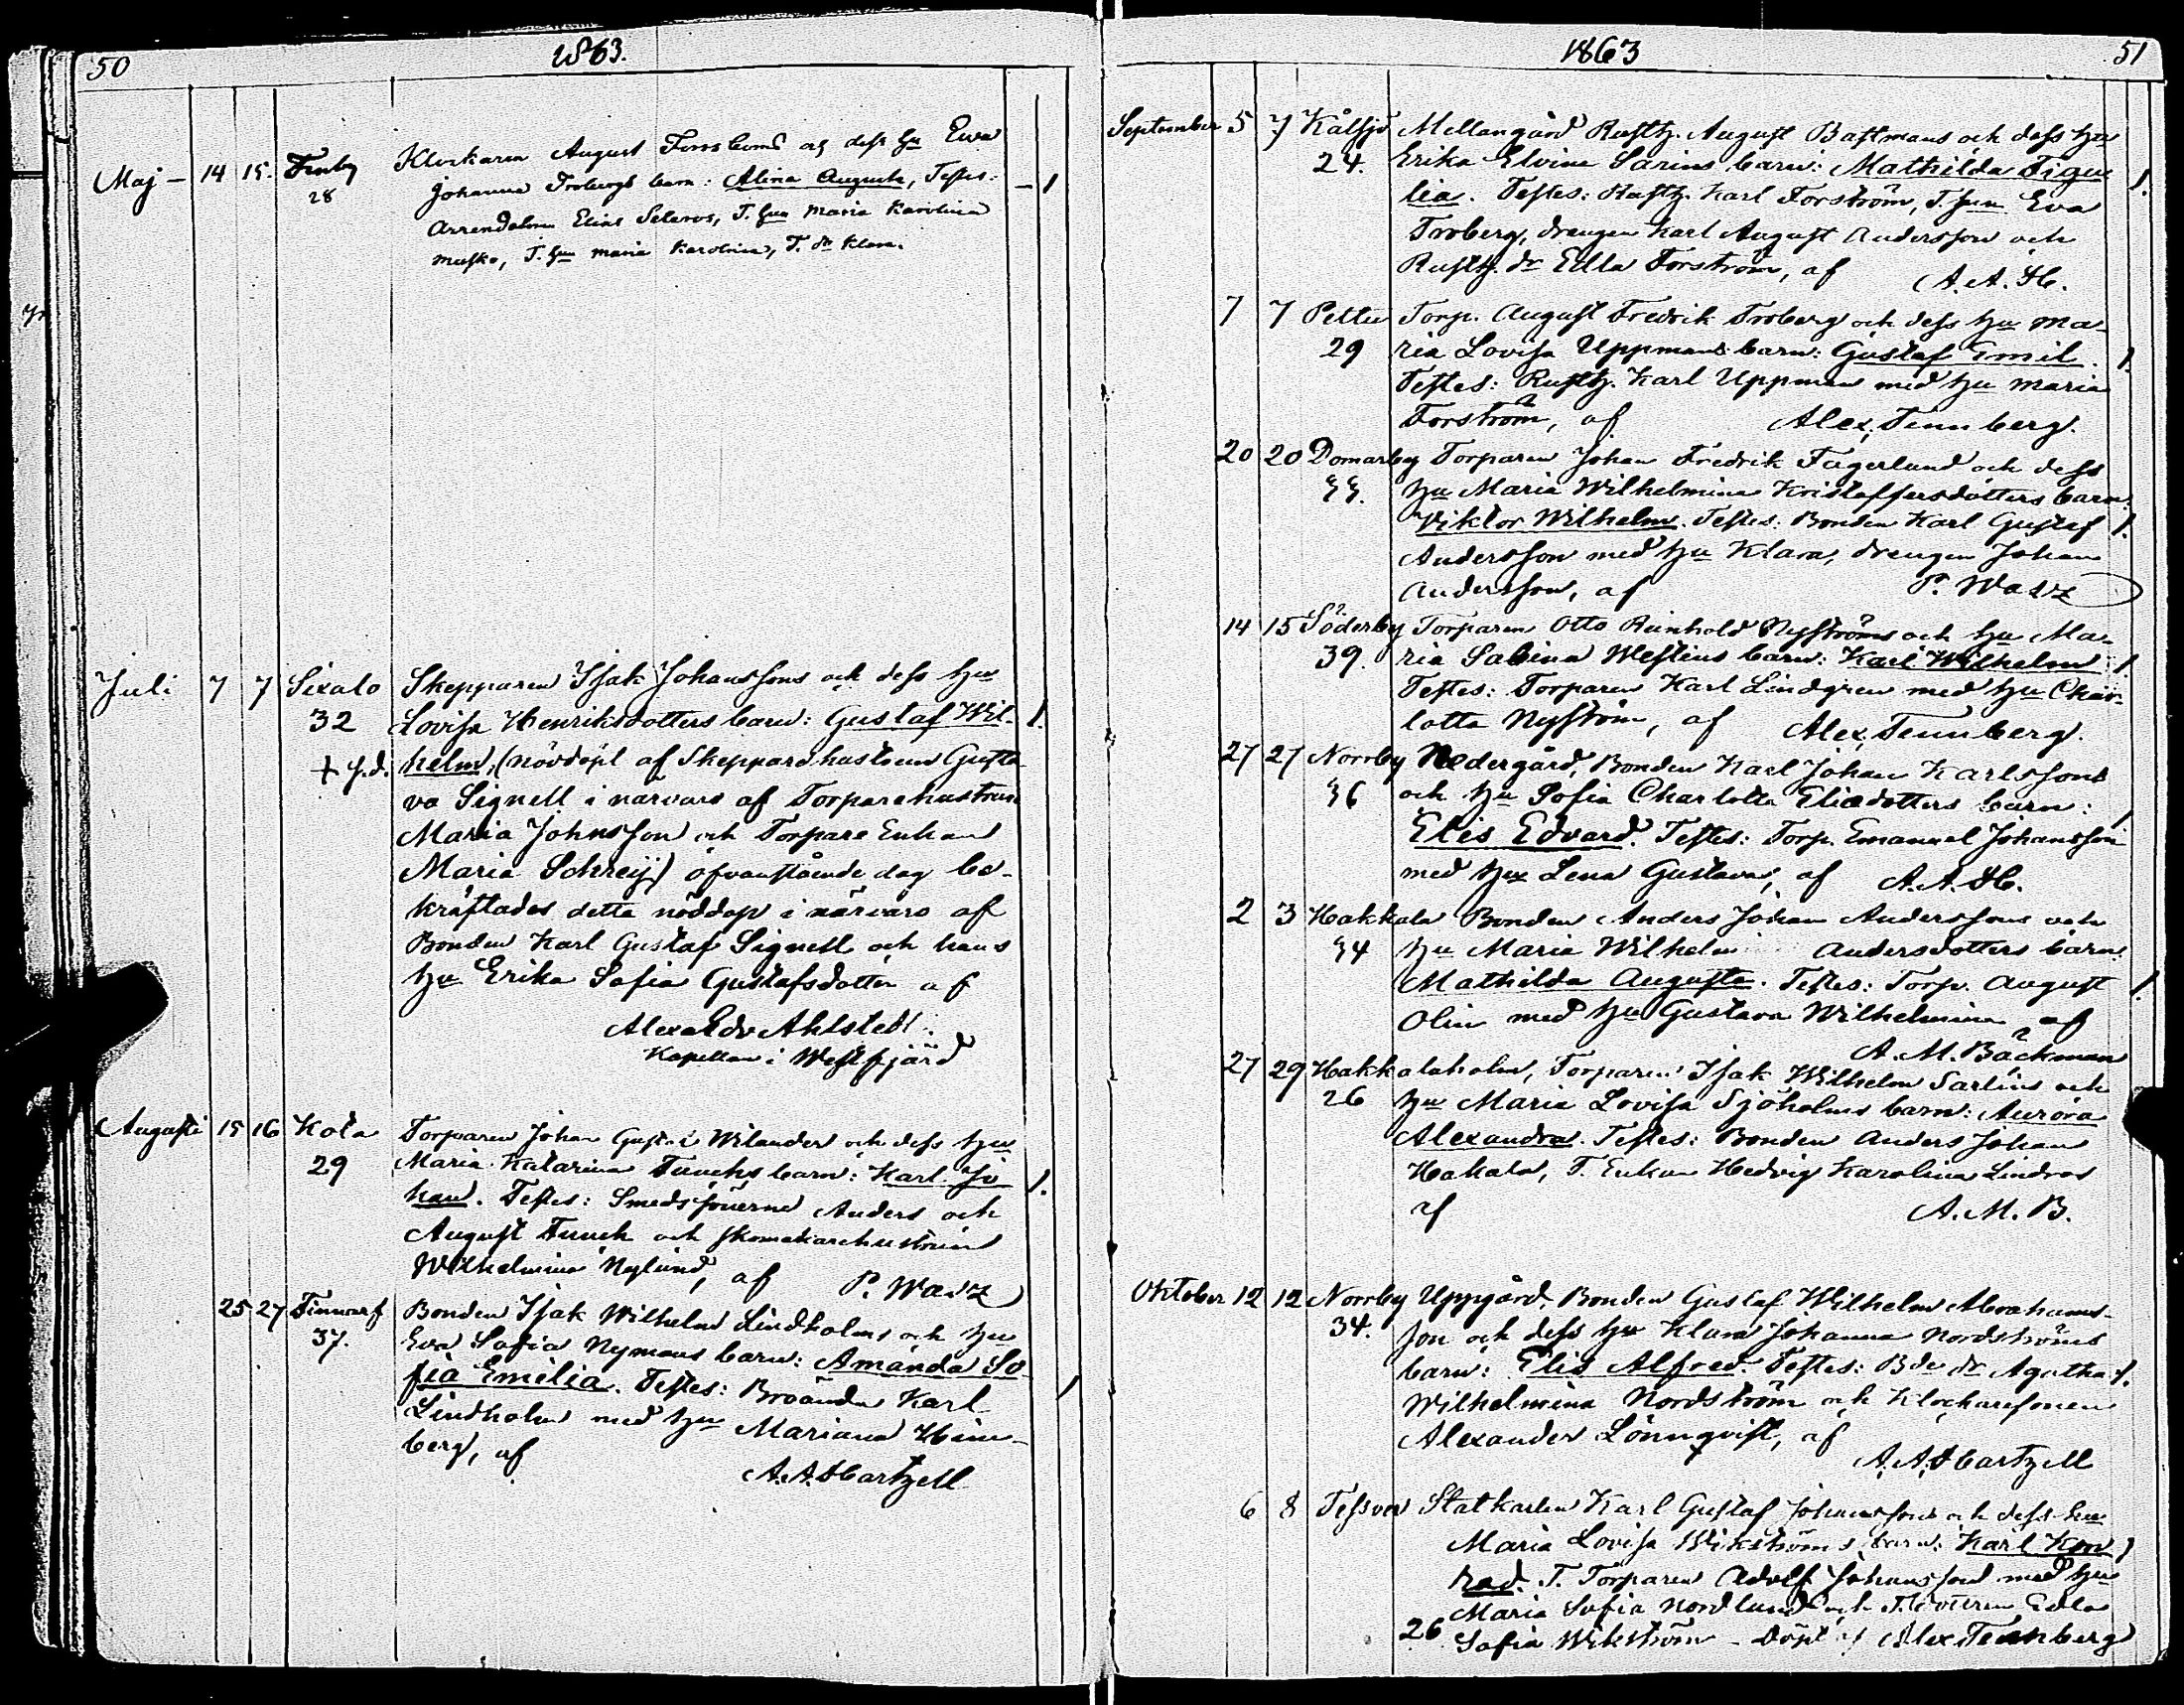 50
1863.
Maj - 14 15. Finby Klockaren August Forsboms och dess hu Ewa
28 Johanna Frobergs barn: Alina Augusta, Testes: - 1
Arrendatorn Elias Seleros, T. hun Maria Karolina
T. hun Maria Karolina, T. dr Klara.
Juli 7 7 Sixalo Skepparen Isak Johanssons och dess hu
32 Lovisa Henriksdotters barn: Gustaf Wil- 1.
+ s.d. helm, (nöddöpt af Skepparehustrun Gusta-
va Signell i närvaro af Torparehustrun
Maria Johnsson och Torpare Enkan
Maria Schreij) ofvanstående dag be-
kräftades detta nöddop i närvaro af
Bonden Karl Gustaf Signell och hans
hu Erika Sofia Gustafsdotter af
Alex Edv Ahlstedt.
Kapellan i Westfjärd
Augusti 15 16 Kota Torparen Johan Gustaf Wilanders och dess hu
29 Maria Katarina Tuncks barn: Karl Jo- 1.
han. Testes: Smedssönerne Anders och
August Tunck och skomakarehustrun
Wilhelmina Nylund, af P. Wadz
25 27 Finnarf Bonden Isak Wilhelm Lindholms och hu
37. Eva Sofia Nymans barn: Amanda So-
fia Emelia. Testes: Karl 1
Lindholm med hu Mariana Hein-
berg, af
A. A. Hartzell
1863
51
September 5 7 Kålsjö Mellangård Rusth. August Bastmans och dess hu
24. Erika Elvina Sarins barn: Mathilda
lia. Testes: Rusth. Karl Forström, T. hun Eva 1.
Froberg, drengen Karl August Andersson och
Rusth. dr Edla Forström, af A. A. H.
7 7 Pettu Torp. August Fredrik Froberg och dess hu Ma-
29 ria Lovisa Uppmans barn: Gustaf Emil. 1.
Testes: Rusth. Karl Uppman med hu Maria
Forström, af Alex, Tennberg.
20 20 Domarby Torparen Johan Fredrik Fagerlund och dess
33. hu Maria Wilhelmina Kristoffersdotters barn:
Viktor Wilhelm. Testes: Bonden Karl Gustaf 1.
Andersson med hu Klara, drengen Johan
Andersson, af P. Wadz
14 15 Söderby Torparen Otto Reinhold Nyströms och hu Ma-
39. ria Sabina Westins barn: Karl Wilhelm 1.
Testes: Torparen Karl Lindgren med hu Char-
lotta Nyström, af Alex, Tennberg.
27 27 Norrby Nedergård, Bonden Karl Johan Karlssons
36 och hu Sofia Charlotta Eliedotters barn:
Elis Edvard. Testes: Torp. Emanuel Johansson 1
med hu Lena Gustava, af A. A. H.
2 3 Hakkala Bonden Anders Johan Anderssons och
34 hu Maria Wilhelm Andersdotters barn:
Mathilda Augusta. Testes: Torp. August 1.
Olin med hu Gustava Wilhelmina af
A. M. Bäckman
27 29 Hakkalaholm, Torparen Isak Wilhelm Sarlins och
26 hu Maria Lovisa Sjöholms barn: Aurora
Alexandra. Testes: Bonden Anders Johan
Hakala, T. Enkan Hedvig Karolina Lindroos
af A. M. B.
Oktober 12 12 Norrby Uppgård, Bonden Gustaf Wilhelm Abrahams-
34. son och dess hu Klara Johanna Nordströms
barn: Elis Alfred. Testes: Bde dr Agatha 1.
Wilhelmina Nordström och Klockaresonen
Alexander Lönnqvist, af
A. A. Hartzell
6 8 Tessvor Statkarlen Karl Gustaf Johanssons och dess hu
Maria Lovisa Wikströms barn: Karl Kon- 1
rad. T. Torparen Adolf Johansson med hu
Maria Sofia Nordlund och Edla
26 Sofia Wikström - Döpt af Alex Tennberg